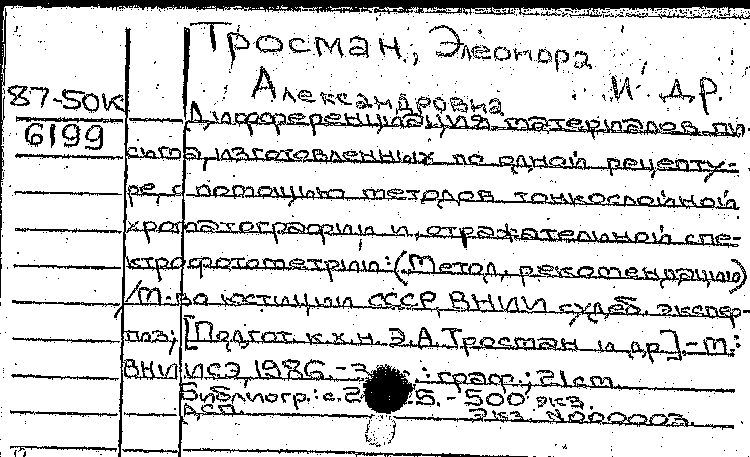 Тросман, Элеонора
Александровна и др.
87-50к
6199
Дифференциация материалов пи-
сьма, изготовленных по одной рецепту-
ре, с помощью методов тонкослойной
хроматографии и отражательной спе-
ктрофотометрии: (Метод. рекомендации)
/М-во юстиции СССР, ВНИИ судеб. экспер-
тиз; [Подгот. к.х.н. Э.А. Тросман и др.].-М.:
ВНИИСЭ, 1986.- : граф.; 21 см.
Библиогр.: с. - 500 экз.
ДСП. Экз. N000003.